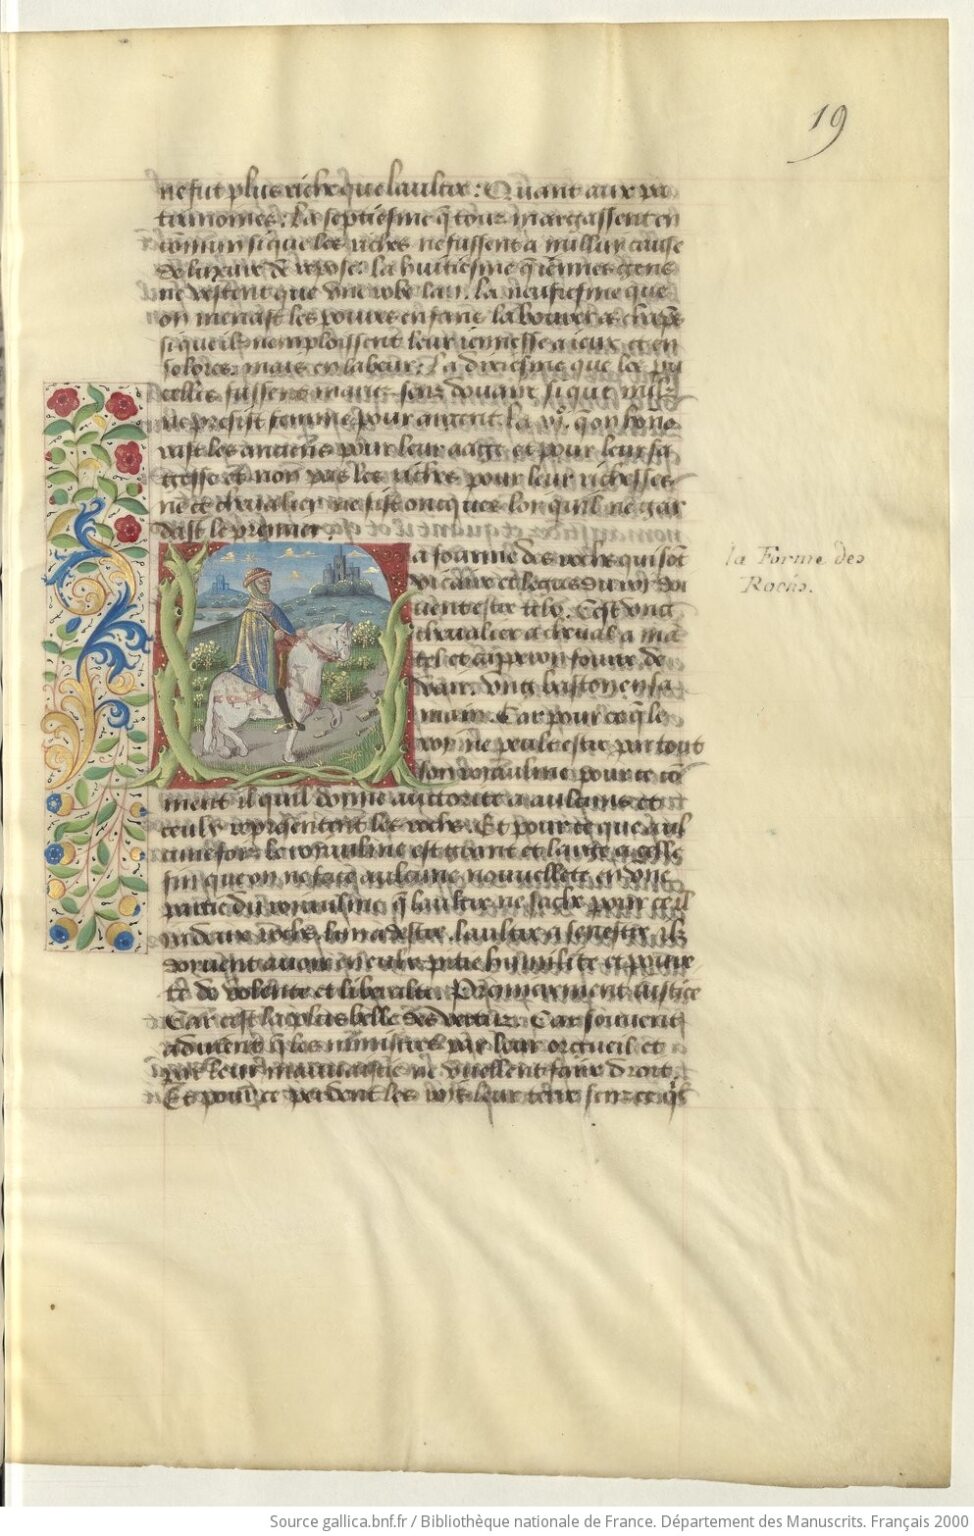 19
ne fut plus riche que laultre : Quant aux pa
trimonies. La septiesme q̃ tour margassent en
comun si que les riches ne fussent a nullui cause
de luxure de repose. la huitiesme q̃ iennes gens
ne vestent que vne robe lan. la neufiesme que
on menast les poures enfans labourer as chãps
si que ilz nemploissent leur iennesse a ieux et en
solores. mais en labeur. La dixiesme que les pu
celles fussent sans douaire si que nulz
ne presist femme pour argent. la xj. q̃ on hono
rast les anciens pour leur aage et pour leur sa
gesse et non pas les riches pour leur richesses
ne ce cheualier ne fist oncques lor quil ne gar
dast le premier.
a fourme des rochz qui sõt
vicaire et legas du roy doi
uent estre telz. Cest vng
cheualier a cheual a mã
tel et chaperon fourre de
vair. vng baston en sa
main. Car pour ce q̃ le
roy ne peult estre par tout
son roiaulme pour ce cõ
ment il quil donne auctorite a aulcuns et
ceulx reprẽsentent les rochz. Et pour ce que aul
cune fois le roiaulme est grant et large a celle
fin que on ne face aulcune nouuellete en vne
partie du roiaulme q̃ laultre ne sache pour ce il
deux rochz. lun a dextre. laultre a senestre. ilz
doiuent auoir en eulx pitie humilite et poure
te de volente et liberalite. Premierement iustice
Car cest la plus belle des vertuz. Car souuent
aduient q̃ les ministres par leur orgueil et
par leur mauuaistie ne vuellent faire droit.
Et pour ce perdent les roys leur terre sens ce q̃lz
la Forme des
Rochs.
Source gallica.bnf.fr / Bibliothèque nationale de France. Département des Manuscrits. Français 2000